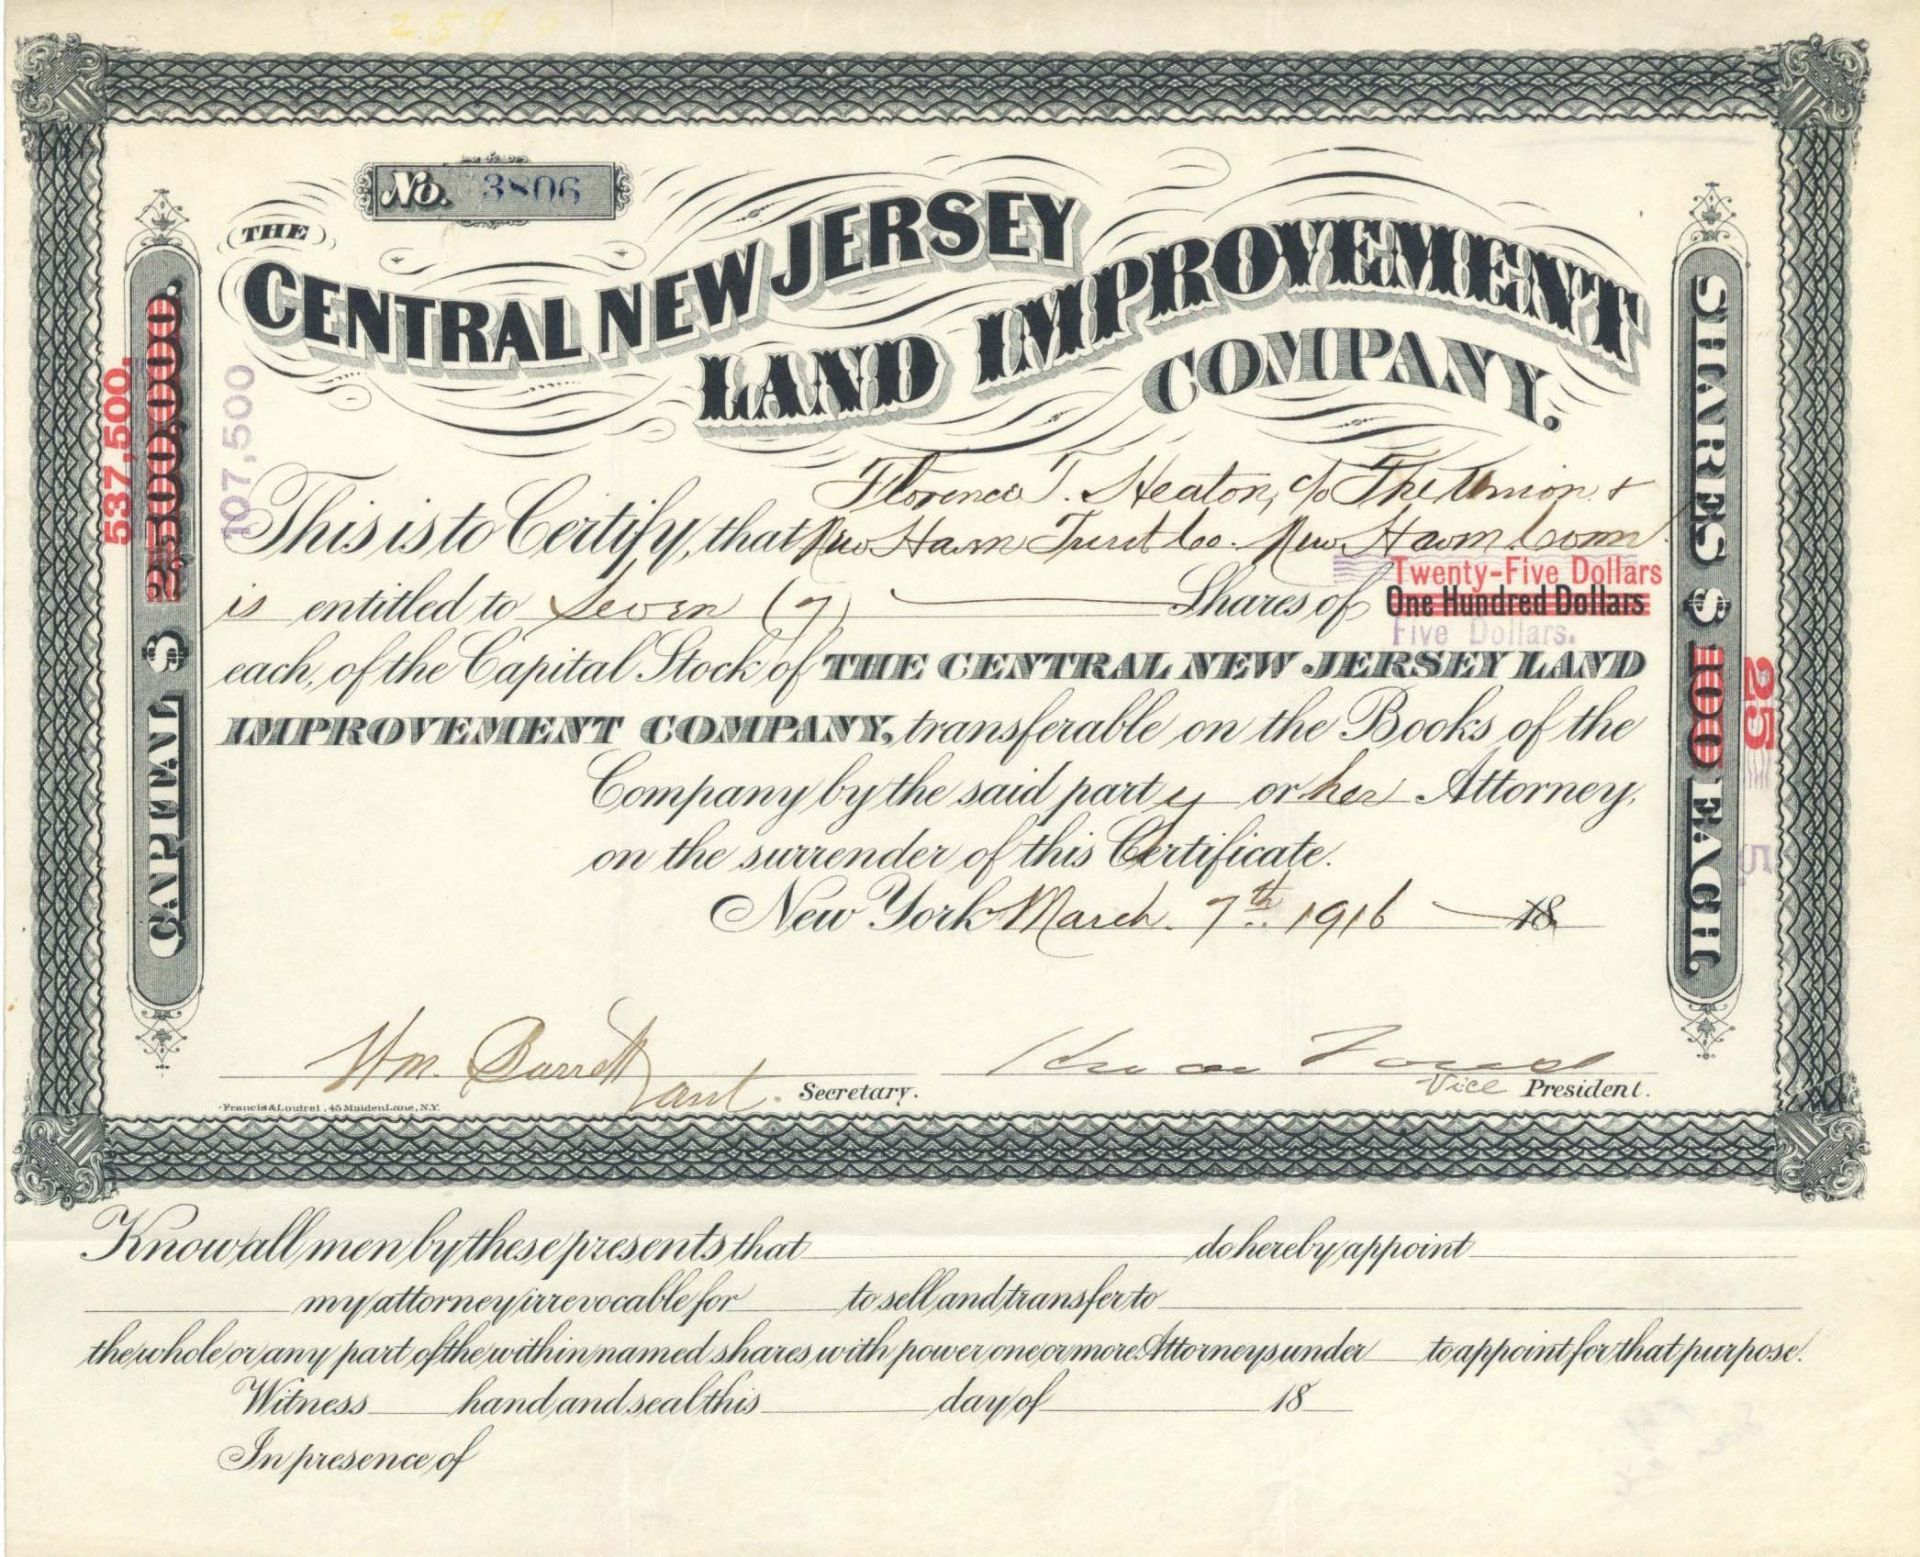 2590
No. 3806
THE
CENTRAL NEW JERSEY
LAND IMPROVEMENT
COMPANY.
CAPITAL $ 2,500,000.
537,500.
107,500
SHARES $ 100 EACH.
25
5
This is to Certify, that Florence T. Heaton, c/o The Union &
New Haven Trust Co. New Haven Conn.
is entitled to Seven (7) Shares of One Hundred Dollars
Twenty-Five Dollars
Five Dollars.
each, of the Capital Stock of THE CENTRAL NEW JERSEY LAND
IMPROVEMENT COMPANY, transferable on the Books of the
Company by the said party or her Attorney,
on the surrender of this Certificate.
New York March 7th 1916 18
Wm. Barrett
asst. Secretary.
Vice President.
Francis & Loutrel, 45 Maiden Lane, N.Y.
Know all men by these presents that do hereby appoint
my attorney irrevocable for to sell and transfer to
the whole or any part of the within named shares with power one or more Attorneys under to appoint for that purpose.
Witness hand and seal this day of 18
In presence of